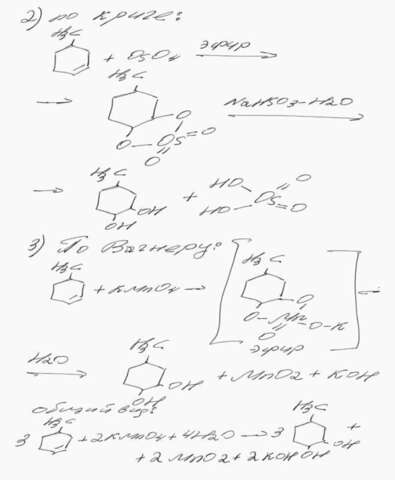 2) по криге:
H3C
+ OsO4 эфир
H3C
O
O Os=O
O
NaHSO3-H2O
H3C
OH
OH
+ HO O
HO Os=O
3) По Вагнеру:
H3C
+ KMnO4 →
H3C
O
O-Mn
O O-K
эфир
H2O
H3C
OH
OH
+ MnO2 + KOH
общий вид:
3 H3C + 2KMnO4 + 4H2O → 3 H3C OH OH +
+ 2 MnO2 + 2 KOH